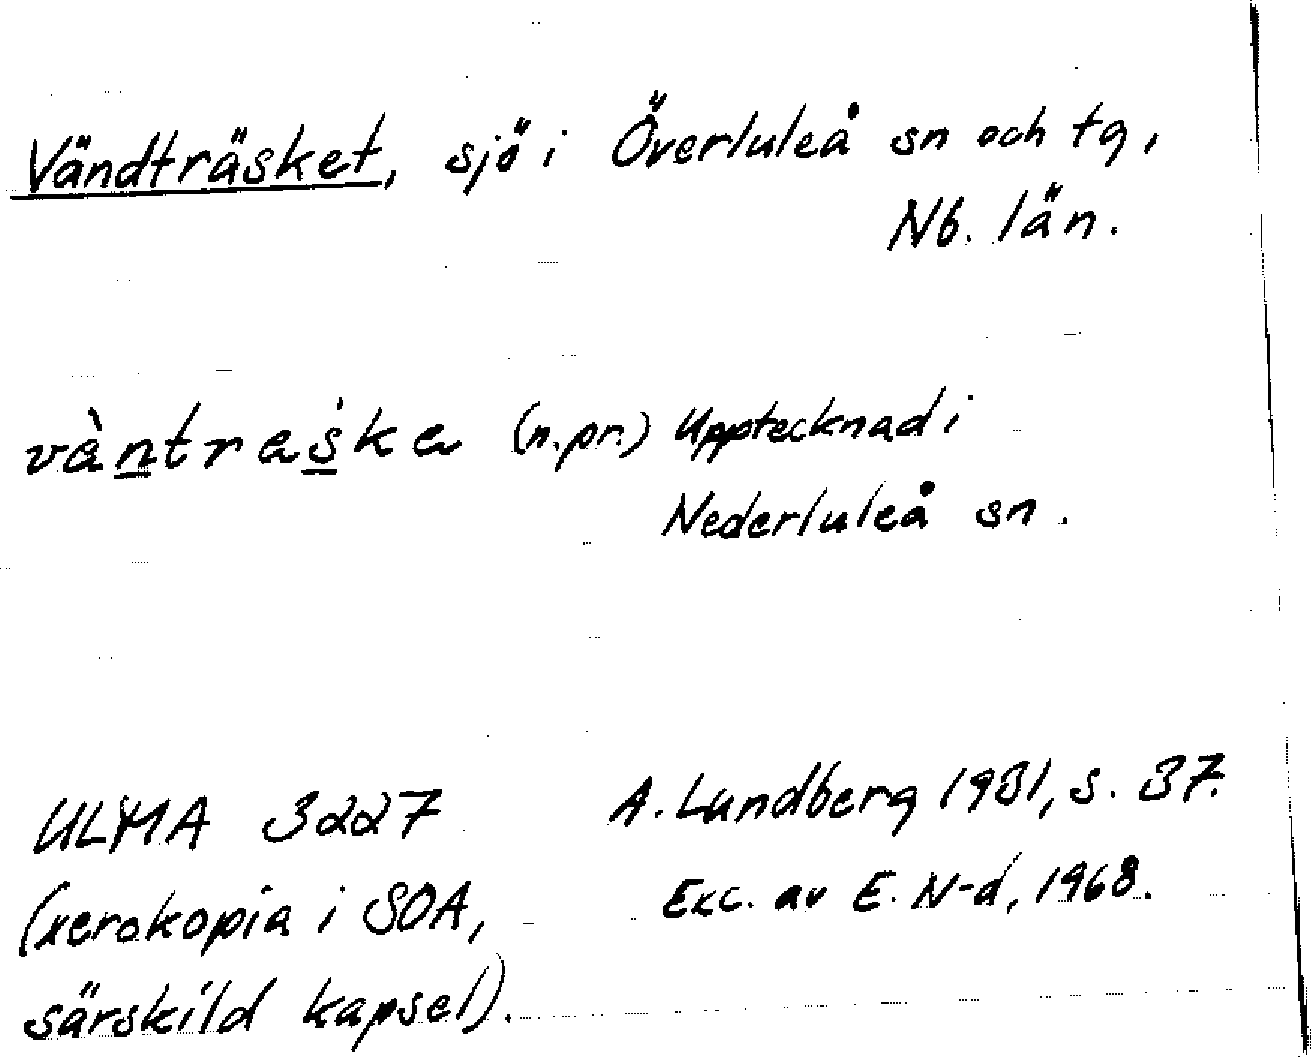 Vändträsket, sjö i Överluleå sn och tg,
Nb. län.
vàntraska (n.pr.) Upptecknad i
Nederluleå sn.
ULMA 3227
(xerokopia i SOA,
särskild kapsel).
A. Lundberg 1931, s. 37.
Exc. av E. N-d, 1968.